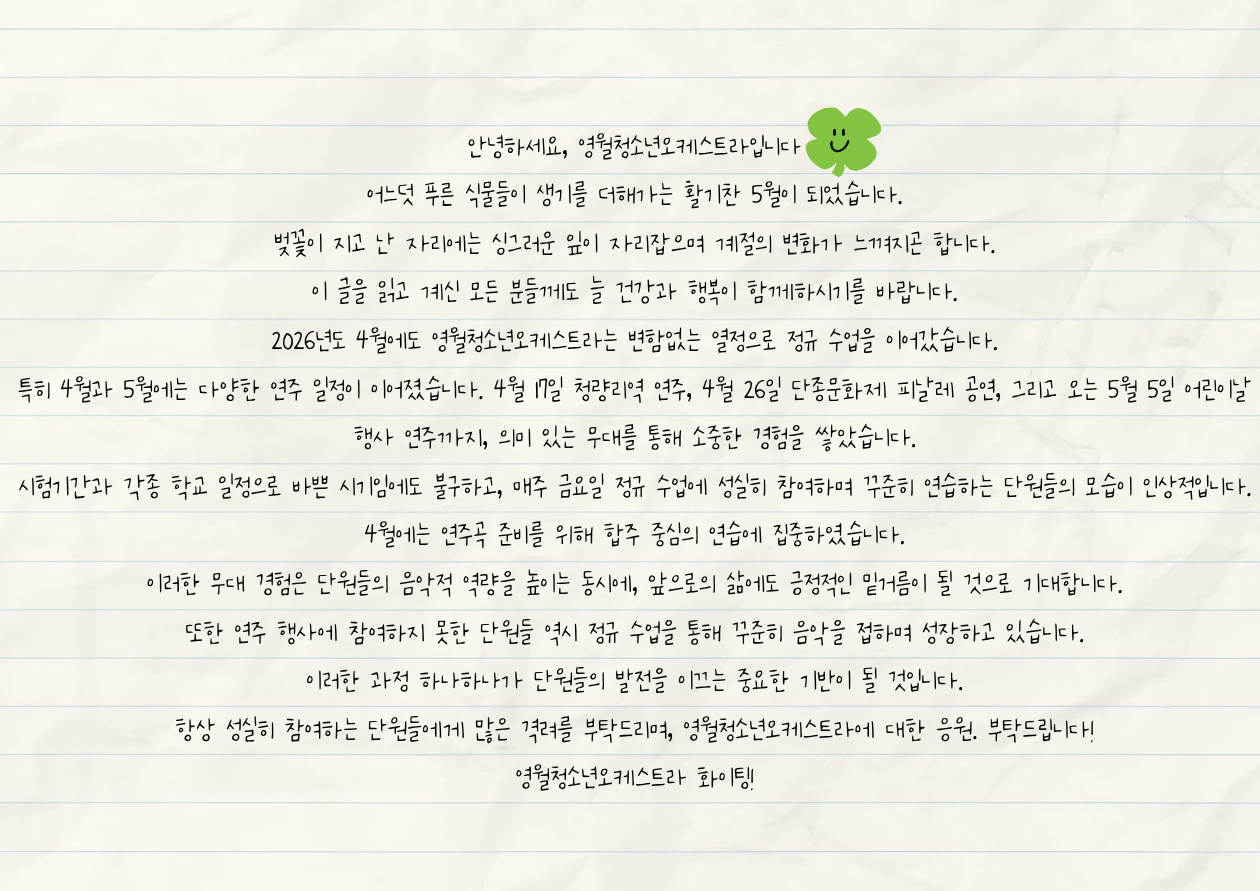 안녕하세요, 영월청소년오케스트라입니다
어느덧 푸른 식물들이 생기를 더해가는 활기찬 5월이 되었습니다.
벚꽃이 지고 난 자리에는 싱그러운 잎이 자리잡으며 계절의 변화가 느껴지곤 합니다.
이 글을 읽고 계신 모든 분들께도 늘 건강과 행복이 함께하시기를 바랍니다.
2026년도 4월에도 영월청소년오케스트라는 변함없는 열정으로 정규 수업을 이어갔습니다.
특히 4월과 5월에는 다양한 연주 일정이 이어졌습니다. 4월 17일 청량리역 연주, 4월 26일 단종문화제 피날레 공연, 그리고 오는 5월 5일 어린이날
행사 연주까지, 의미 있는 무대를 통해 소중한 경험을 쌓았습니다.
시험기간과 각종 학교 일정으로 바쁜 시기임에도 불구하고, 매주 금요일 정규 수업에 성실히 참여하며 꾸준히 연습하는 단원들의 모습이 인상적입니다.
4월에는 연주곡 준비를 위해 합주 중심의 연습에 집중하였습니다.
이러한 무대 경험은 단원들의 음악적 역량을 높이는 동시에, 앞으로의 삶에도 긍정적인 밑거름이 될 것으로 기대합니다.
또한 연주 행사에 참여하지 못한 단원들 역시 정규 수업을 통해 꾸준히 음악을 접하며 성장하고 있습니다.
이러한 과정 하나하나가 단원들의 발전을 이끄는 중요한 기반이 될 것입니다.
항상 성실히 참여하는 단원들에게 많은 격려를 부탁드리며, 영월청소년오케스트라에 대한 응원. 부탁드립니다!
영월청소년오케스트라 화이팅!